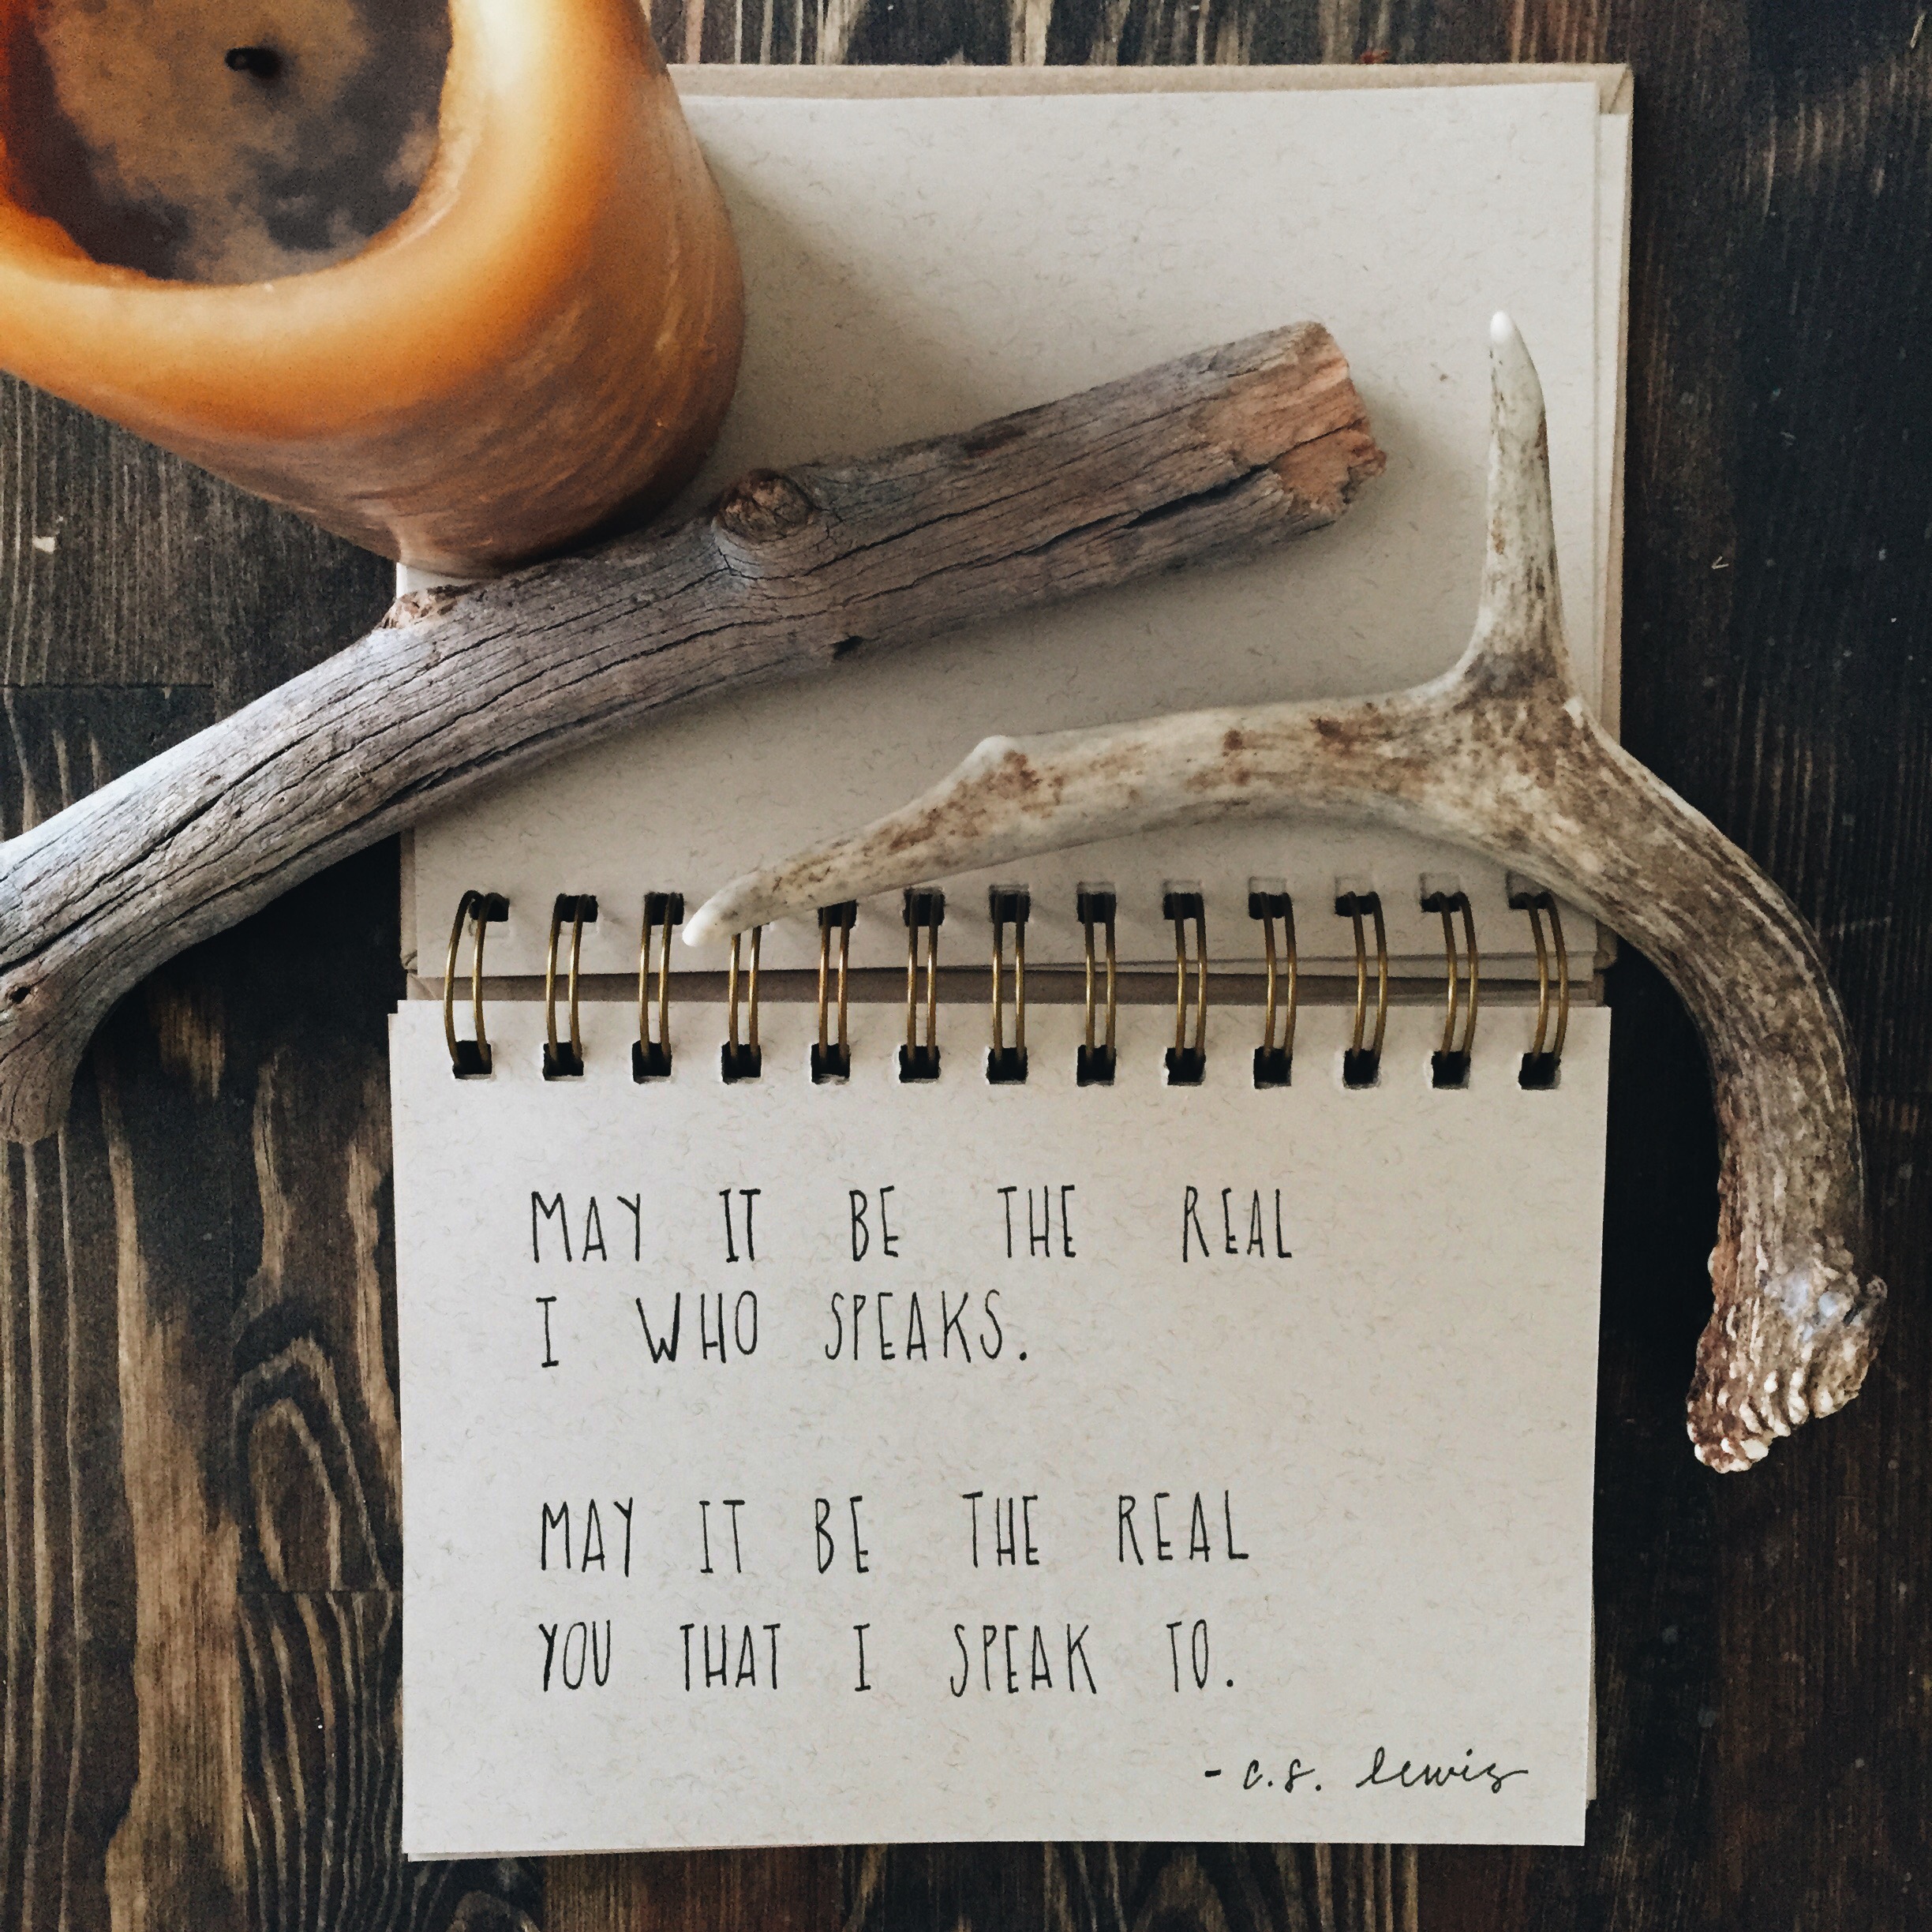 MAY IT BE THE REAL
I WHO SPEAKS.
MAY IT BE THE REAL
YOU THAT I SPEAK TO.
- c.s. lewis